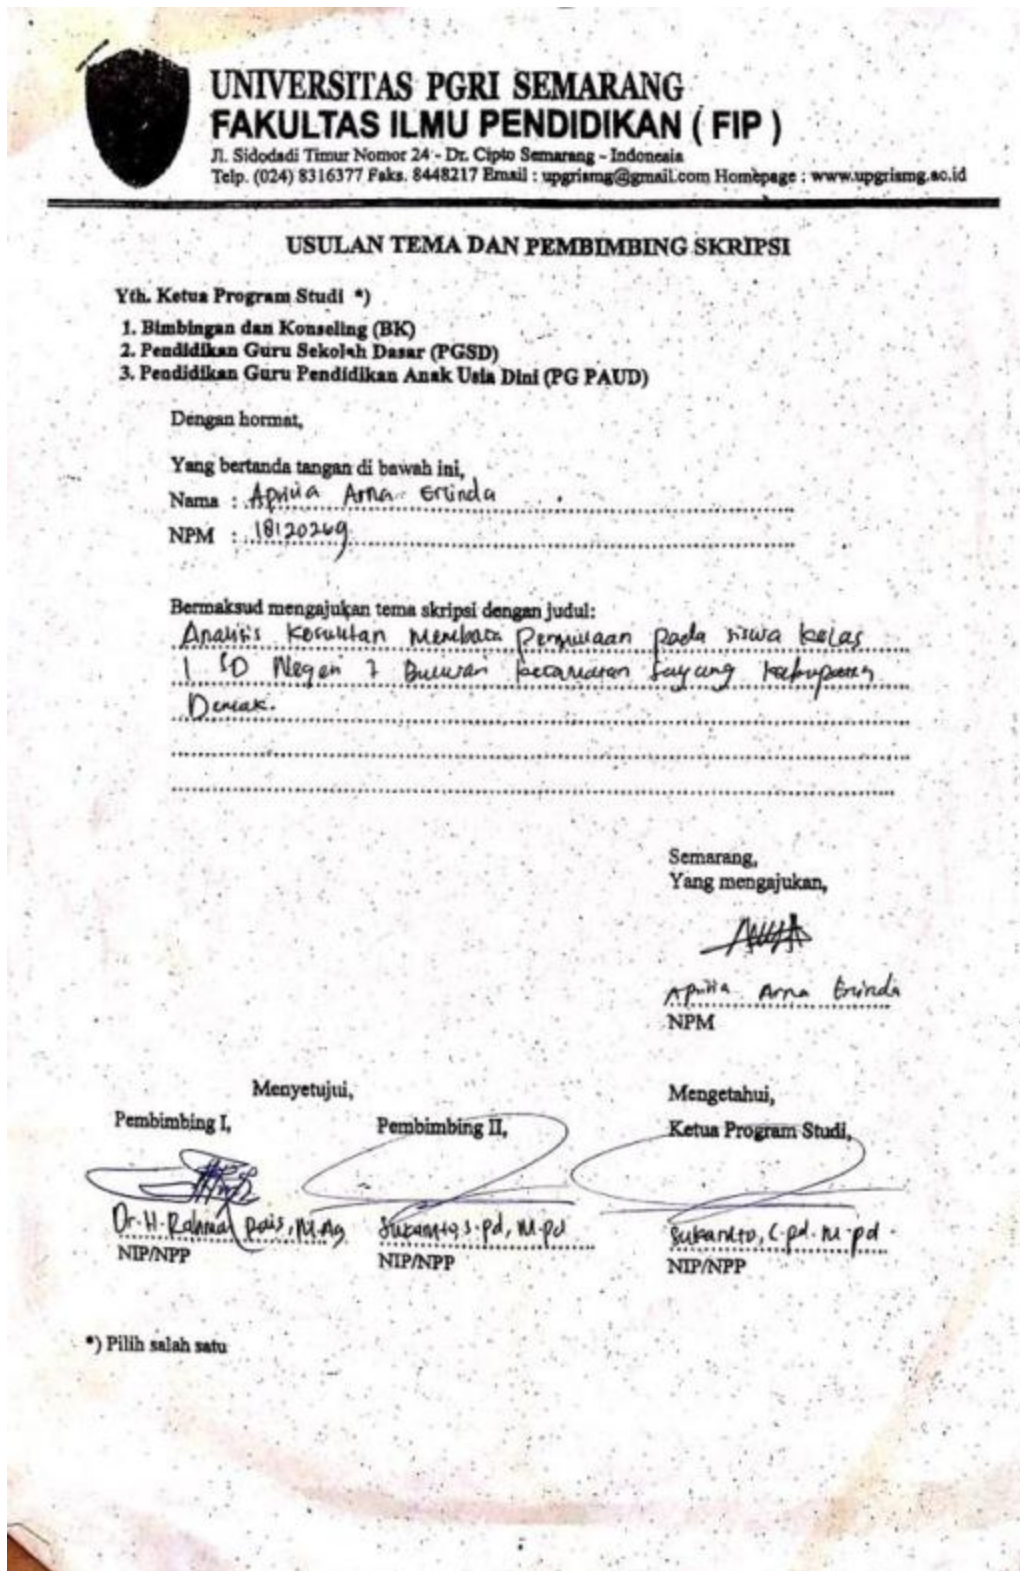 UNIVERSITAS PGRI SEMARANG
FAKULTAS ILMU PENDIDIKAN ( FIP )
Jl. Sidodadi Timur Nomor 24 - Dr. Cipto Semarang - Indonesia
Telp. (024) 8316377 Faks. 8448217 Email : upgrismg@gmail.com Homepage : www.upgrismg.ac.id
USULAN TEMA DAN PEMBIMBING SKRIPSI
Yth. Ketua Program Studi *)
1. Bimbingan dan Konseling (BK)
2. Pendidikan Guru Sekolah Dasar (PGSD)
3. Pendidikan Guru Pendidikan Anak Usia Dini (PG PAUD)
Dengan hormat,
Yang bertanda tangan di bawah ini,
Nama : Aprilia Arna
NPM : 18120269
Bermaksud mengajukan tema skripsi dengan judul:
Analisis Kesulitan Membaca Permulaan pada siswa kelas
1 SD Negeri kecamatan Sayung Kabupaten
Demak.
Semarang,
Yang mengajukan,
Aprilia Arna
NPM
Menyetujui, Mengetahui,
Pembimbing I, Pembimbing II, Ketua Program Studi,
Dr. H. Rahmat Rais, M.Ag Sukamto, S.pd, M.pd Sukamto, S.pd. M.pd.
NIP/NPP NIP/NPP NIP/NPP
*) Pilih salah satu